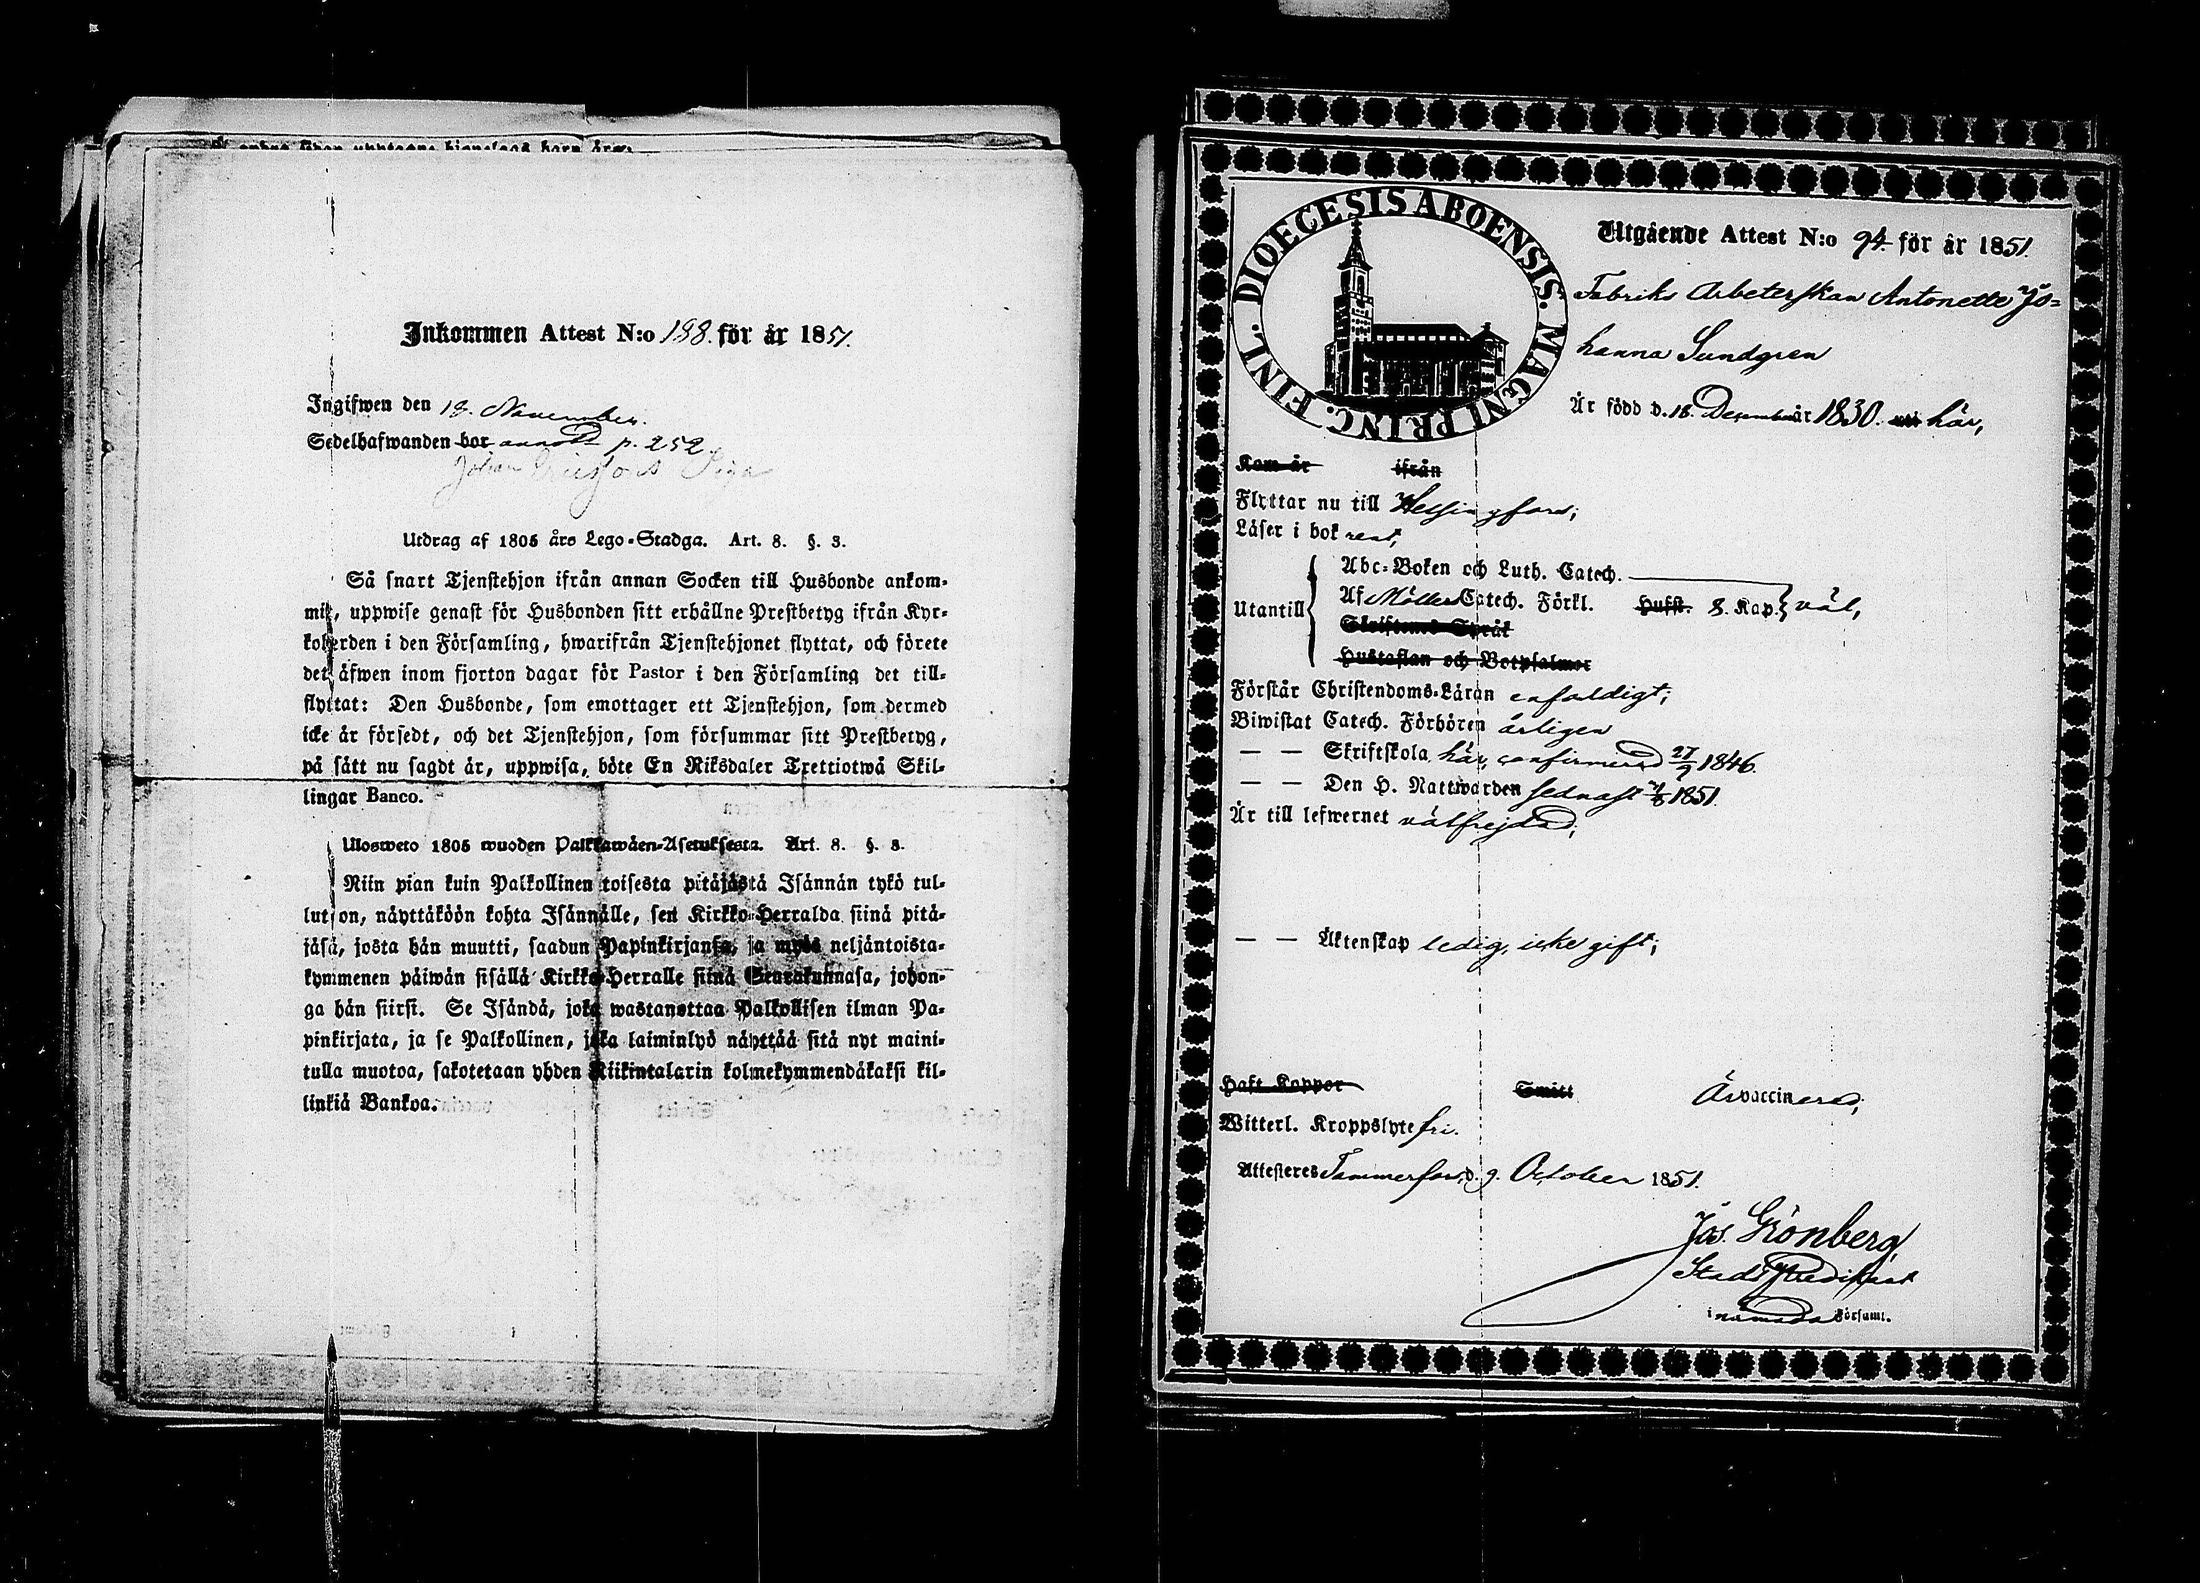 Inkommen Attest N:o 188. för år 1851.
Ingifwen den 18. November.
Sedelhafwanden bor annot p. 252
Johan
Utdrag af 1805 års Lego-Stadga. Art. 8. §. 3.
Så snart Tjenstehjon ifrån annan Socken till Husbonde ankom-
mit, uppwise genast för Husbonden sitt erhållne Prestbetyg ifrån Kyr-
koherden i den Församling, hwarifrån Tjenstehjonet flyttat, och förete
det äfwen inom fjorton dagar för Pastor i den Församling det till-
flyttat: Den Husbonde, som emottager ett Tjenstehjon, som dermed
icke är försedt, och det Tjenstehjon, som försummar sitt Prestbetyg,
på sätt nu sagdt är, uppwisa, böte En Riksdaler Trettiotwå Skil-
lingar Banco.
Ulosweto 1805 wuoden Palkkawäen-Asetuksesta. Art. 8. §. 3.
Niin pian kuin Palkollinen toisesta pitäjästä Isännän tykö tul-
lut on, näyttäköön kohta Isännälle, sen Kirkko-Herralda siinä pitä-
jäsä, josta hän muutti, saadun Papinkirjansa, ja myös neljäntoista-
kymmenen päiwän sisällä Kirkko-Herralle siinä Seurakunnasa, johon-
ga hän siirsi. Se Isändä, joka wastanottaa Palkollisen ilman Pa-
pinkirjata, ja se Palkollinen, joka laiminlyö näyttää sitä nyt maini-
tulla muotoa, sakotetaan yhden Riikintalarin kolmekymmendäkaksi kil-
linkiä Bankoa.
DIOECESIS ABOENSIS. MAGNI PRINC. FINL.
Utgående Attest N:o 94. för år 1851.
Fabriks Arbeterskan Antonette Jo-
hanna Sundgren
Är född d. 18. December år 1830. uti här,
Kom år ifrån
Flyttar nu till Helsingfors;
Läser i bok rent,
Abc-Boken och Luth. Catech.
Utantill Af Möllers Catech. Förkl. Hufst. 8. Kap. väl,
Skriftens Språk
Hustaflan och Botpsalmer
Förstår Christendoms-Läran enfaldigt;
Biwistat Catech. Förhören årligen
— — Skriftskola här, confirmerad 27/9 1846.
— — Den H. Nattwarden sednast 7/8 1851.
Är till lefwernet välfrejdad;
— — Äktenskap ledig, icke gift;
Haft Koppor Smitt Är vaccinerad;
Witterl. Kroppslyte fri.
Attesteres Tammerfors, d. 9. October 1851.
Jos. Grönberg
Stadspredikant
i nämnda Församl.